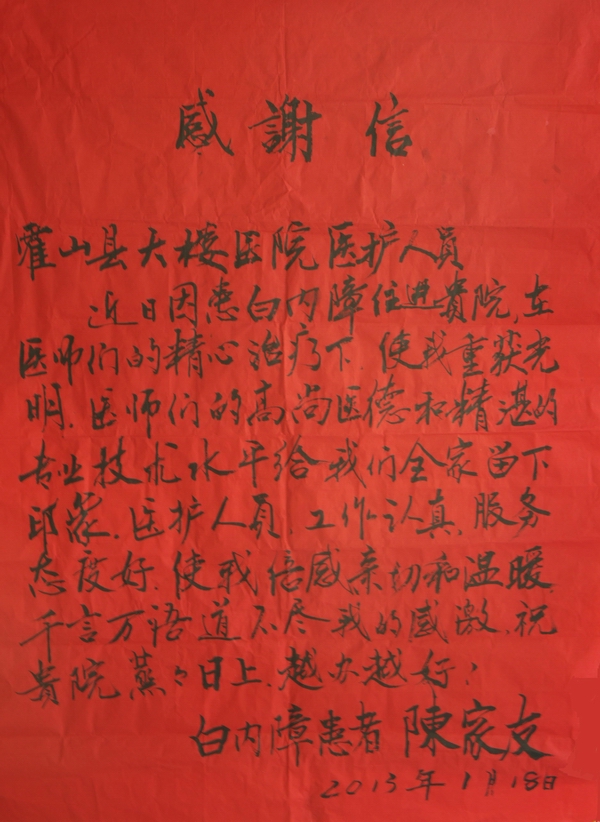 感謝信
霍山县大楼医院医护人员
近日因患白内障住进貴院,在
医师们的精心治疗下.使我重获光
明.医师们的高尚医德和精湛的
专业技术水平给我们全家留下
印象.医护人员.工作认真.服务
态度好.使我倍感亲切和温暖.
千言万语道不尽我的感激.祝
貴院蒸々日上.越办越好!
白内障患者陳家友
2013年1月18日